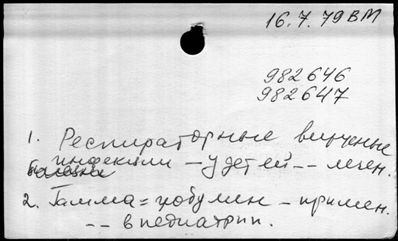 16.7.79 ВМ
982646
982647
1. Респираторные вирусные
инфекции – у детей -- лечен.
2. Гамма=глобулин – примен.
-- в педиатрии.